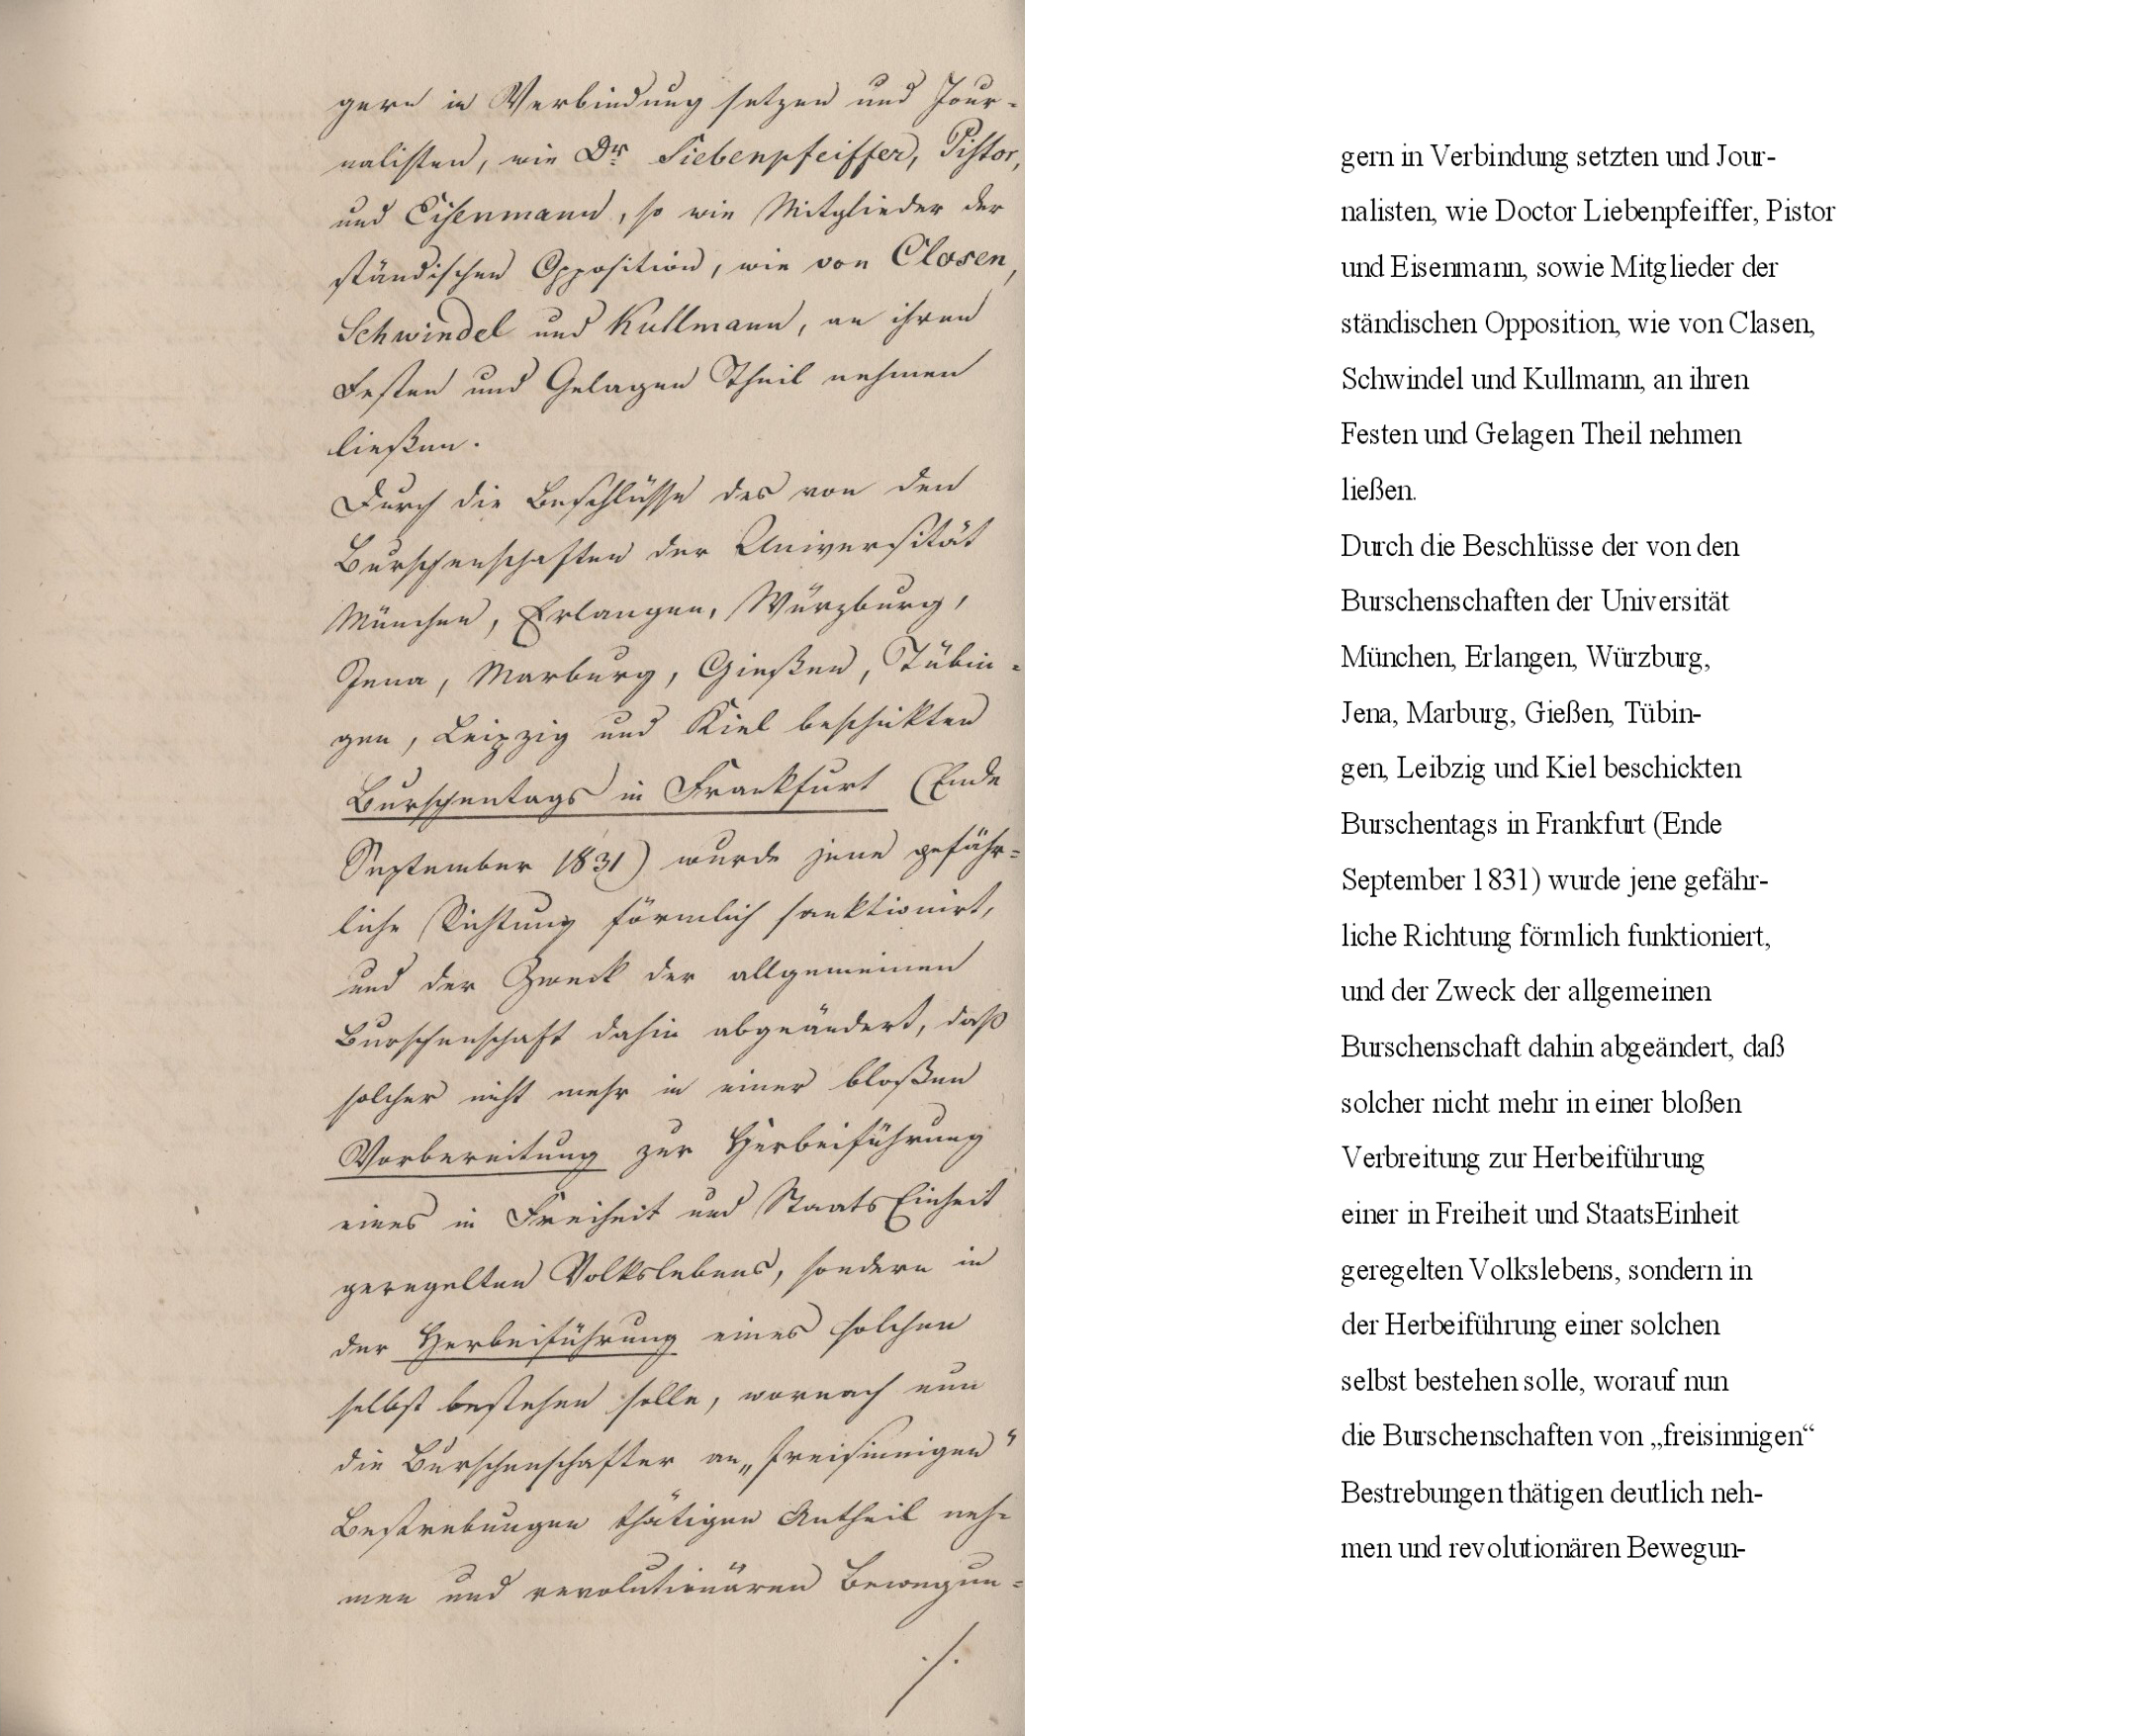 gern in Verbindung setzen und Jour-
nalisten, wie Dr. Siebenpfeiffer, Pistor,
und Eisenmann, so wie Mitglieder der
ständischen Opposition, wie von Closen,
Schwindel und Kullmann, an ihren
Festen und Gelagen Theil nehmen
ließen.
Durch die Beschlüsse des von den
Burschenschaften der Universität
München, Erlangen, Würzburg,
Jena, Marburg, Gießen, Tübin-
gen, Leipzig und Kiel beschikten
Burschentags in Frankfurt (Ende
September 1831) wurde jene gefähr-
liche Richtung förmlich sanktionirt,
und der Zweck der allgemeinen
Burschenschaft dahin abgeändert, daß
solcher nicht mehr in einer bloßen
Vorbereitung zur Herbeiführung
eines in Freiheit und StaatsEinheit
geregelten Volkslebens, sondern in
der Herbeiführung eines solchen
selbst bestehen solle, wornach nun
die Burschenschafter an „freisinnigen“
Bestrebungen thätigen Antheil neh-
men und revolutionären Bewegun-
./.
gern in Verbindung setzten und Jour-
nalisten, wie Doctor Liebenpfeiffer, Pistor
und Eisenmann, sowie Mitglieder der
ständischen Opposition, wie von Clasen,
Schwindel und Kullmann, an ihren
Festen und Gelagen Theil nehmen
ließen.
Durch die Beschlüsse der von den
Burschenschaften der Universität
München, Erlangen, Würzburg,
Jena, Marburg, Gießen, Tübin-
gen, Leibzig und Kiel beschickten
Burschentags in Frankfurt (Ende
September 1831) wurde jene gefähr-
liche Richtung förmlich funktioniert,
und der Zweck der allgemeinen
Burschenschaft dahin abgeändert, daß
solcher nicht mehr in einer bloßen
Verbreitung zur Herbeiführung
einer in Freiheit und StaatsEinheit
geregelten Volkslebens, sondern in
der Herbeiführung einer solchen
selbst bestehen solle, worauf nun
die Burschenschaften von „freisinnigen“
Bestrebungen thätigen deutlich neh-
men und revolutionären Bewegun-